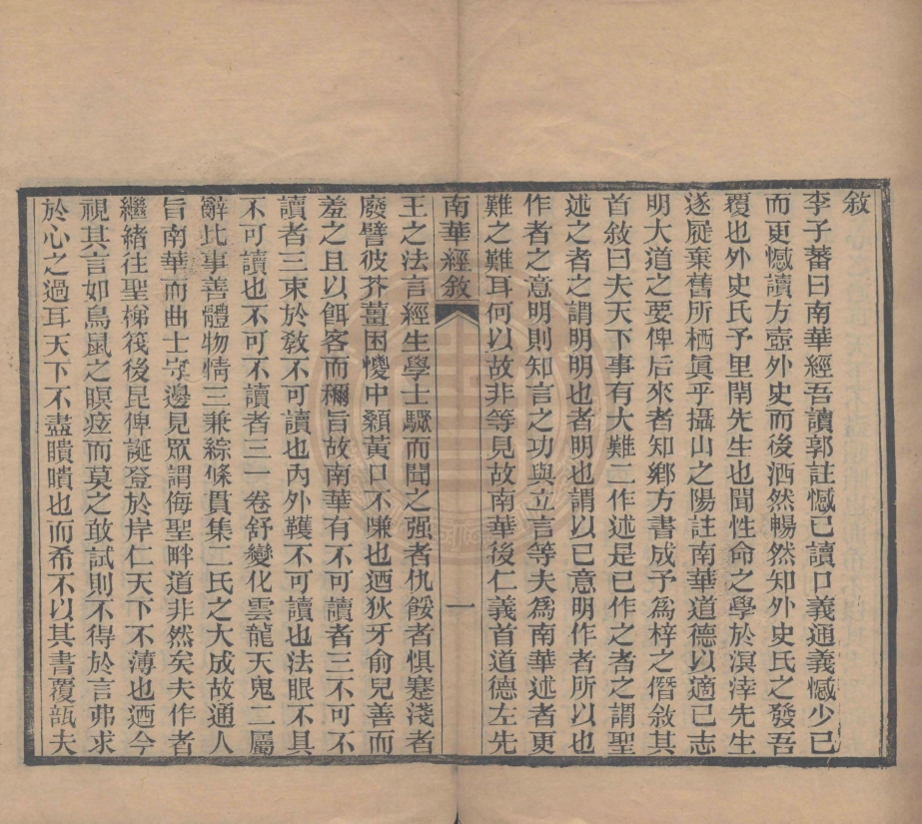 敘
李子蕃曰南華經吾讀郭註憾已讀口義通義憾少已
而更憾讀方壺外史而後洒然暢然知外史氏之發吾
覆也外史氏予里閈先生也聞性命之學於溟涬先生
遂屣棄舊所栖眞乎攝山之陽註南華道德以適己志
明大道之要俾后來者知鄉方書成予爲梓之僭敘其
首敘曰夫天下事有大難二作述是已作之者之謂聖
述之者之謂明明也者明也謂以已意明作者所以也
作者之意明則知言之功與立言等夫爲南華述者更
難之難耳何以故非等見故南華後仁義首道德左先
南華經敘
一
王之法言經生學士驟而聞之强者仇餒者惧蹇淺者
廢譬彼芥薑困懓中纇黃口不嗛也迺狄牙俞兒善而
羞之且以餌客而稱旨故南華有不可讀者三不可不
讀者三束於敎不可讀也內外韄不可讀也法眼不具
不可讀也不可不讀者三一卷舒變化雲龍天鬼二屬
辭比事善體物情三兼綜條貫集二氏之大成故通人
旨南華而曲士守邊見眾謂侮聖畔道非然矣夫作者
繼緒往聖梯筏後昆俾誕登於岸仁天下不薄也迺今
視其言如鳥鼠之瞑𤵸而莫之敢試則不得於言弗求
於心之過耳天下不盡瞶瞶也而希不以其書覆瓿夫